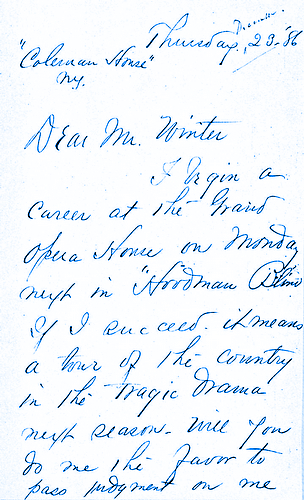 Thursday, 23. '86
"Coleman House"
Ny.
Dear Mr. Winter
I begin a
career at the Grand
Opera House on Monday
next in "Hoodman Blind
If I succeed. it means
a tour of the country
in the tragic drama
next season. Will you
do me the favor to
pass judgment on me